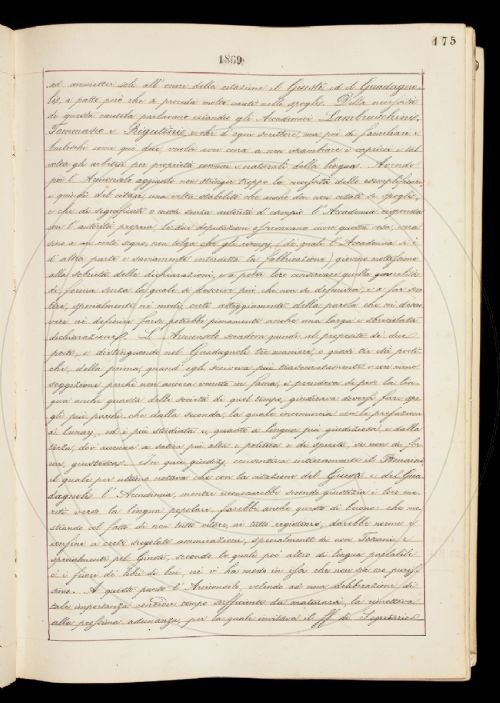 175
1869
ad ammetter soli all'onore della citazione il Giusti ed il Guadagno-
li, a patto però che si proceda molto cauti nello spoglio. Della necessità
di questa cautela parlavano eziandio gli Accademici Lambruschini,
Tommaseo e Rigutini, e che ogni scrittore, ma più di famigliari e
con cura a non scambiare i capricci e tal
volta gli arbitrii per proprietà comuni e naturali della lingua. Avendo
poi l'Arciconsolo aggiunto non stringer troppo la necessità delle esemplificazioni
e quindi del citare, una volta stabilito che modi da non citati si spoglino,
e che di significati o modi senza autorità d'esempi l'Accademia risponda
con l'autorità propria; le due deputazioni affermavano
sino a un certo segno, non tolga che gli esempj (de' quali l'Accademia si è
d'altra parte e saviamente interdetta la fabbricazione) giovino moltissimo
alla sobrietà delle dichiarazioni, e a poter loro conservare quella
di forma senza la quale si descrive più che non si definisca; e a far sen-
tire, specialmente ne' modi, certi atteggiamenti della parola che nè descri-
vere nè definire forse potrebbe pienamente anche una larga e
dichiarazione. L'Arciconsolo scendeva quindi al proposito di due
poeti, e distinguendo nel Guadagnoli tre maniere, o quasi tre età poeti-
che, della prima, quand'egli scriveva più trascuratamente e con meno
soggezione perchè non ancora venuto in fama, e prendeva di peso la lin-
gua anche guasta della società di quel tempo, giudicava doversi fare spo-
gli più parchi che dalla seconda, la quale incomincia con la prefazione
ai Lunarj, ed è più studiata e, quanto a lingua, più giudiziosa; e dalla
terza, dov'ancora la satira più alta e politica e
In quei giudizj consentiva interamente il Tommaseo
il quale per ultimo notava che con la citazione del Giusti e del Gua-
dagnoli l'Accademia, mentre riconoscerebbe secondo giustizia i loro me-
riti verso la lingua popolare, farebbe anche questo di buono: che mo-
strando col fatto di non tutto citare nè tutto registrare, darebbe norme e
confini a certe sregolate ammirazioni, specialmente di non Toscani e
specialmente pel Giusti; secondo le quali poi altro di lingua parlabile
è fuori de' libri di lui, nè v'ha modo in essi che non sia oro puris-
simo. A questo punto l'Arciconsolo, volendo ad una deliberazione di
tale importanza serbare tempo sufficiente da maturarsi, la rimetteva
alla prossima adunanza, per la quale invitava il ff. di Segretario